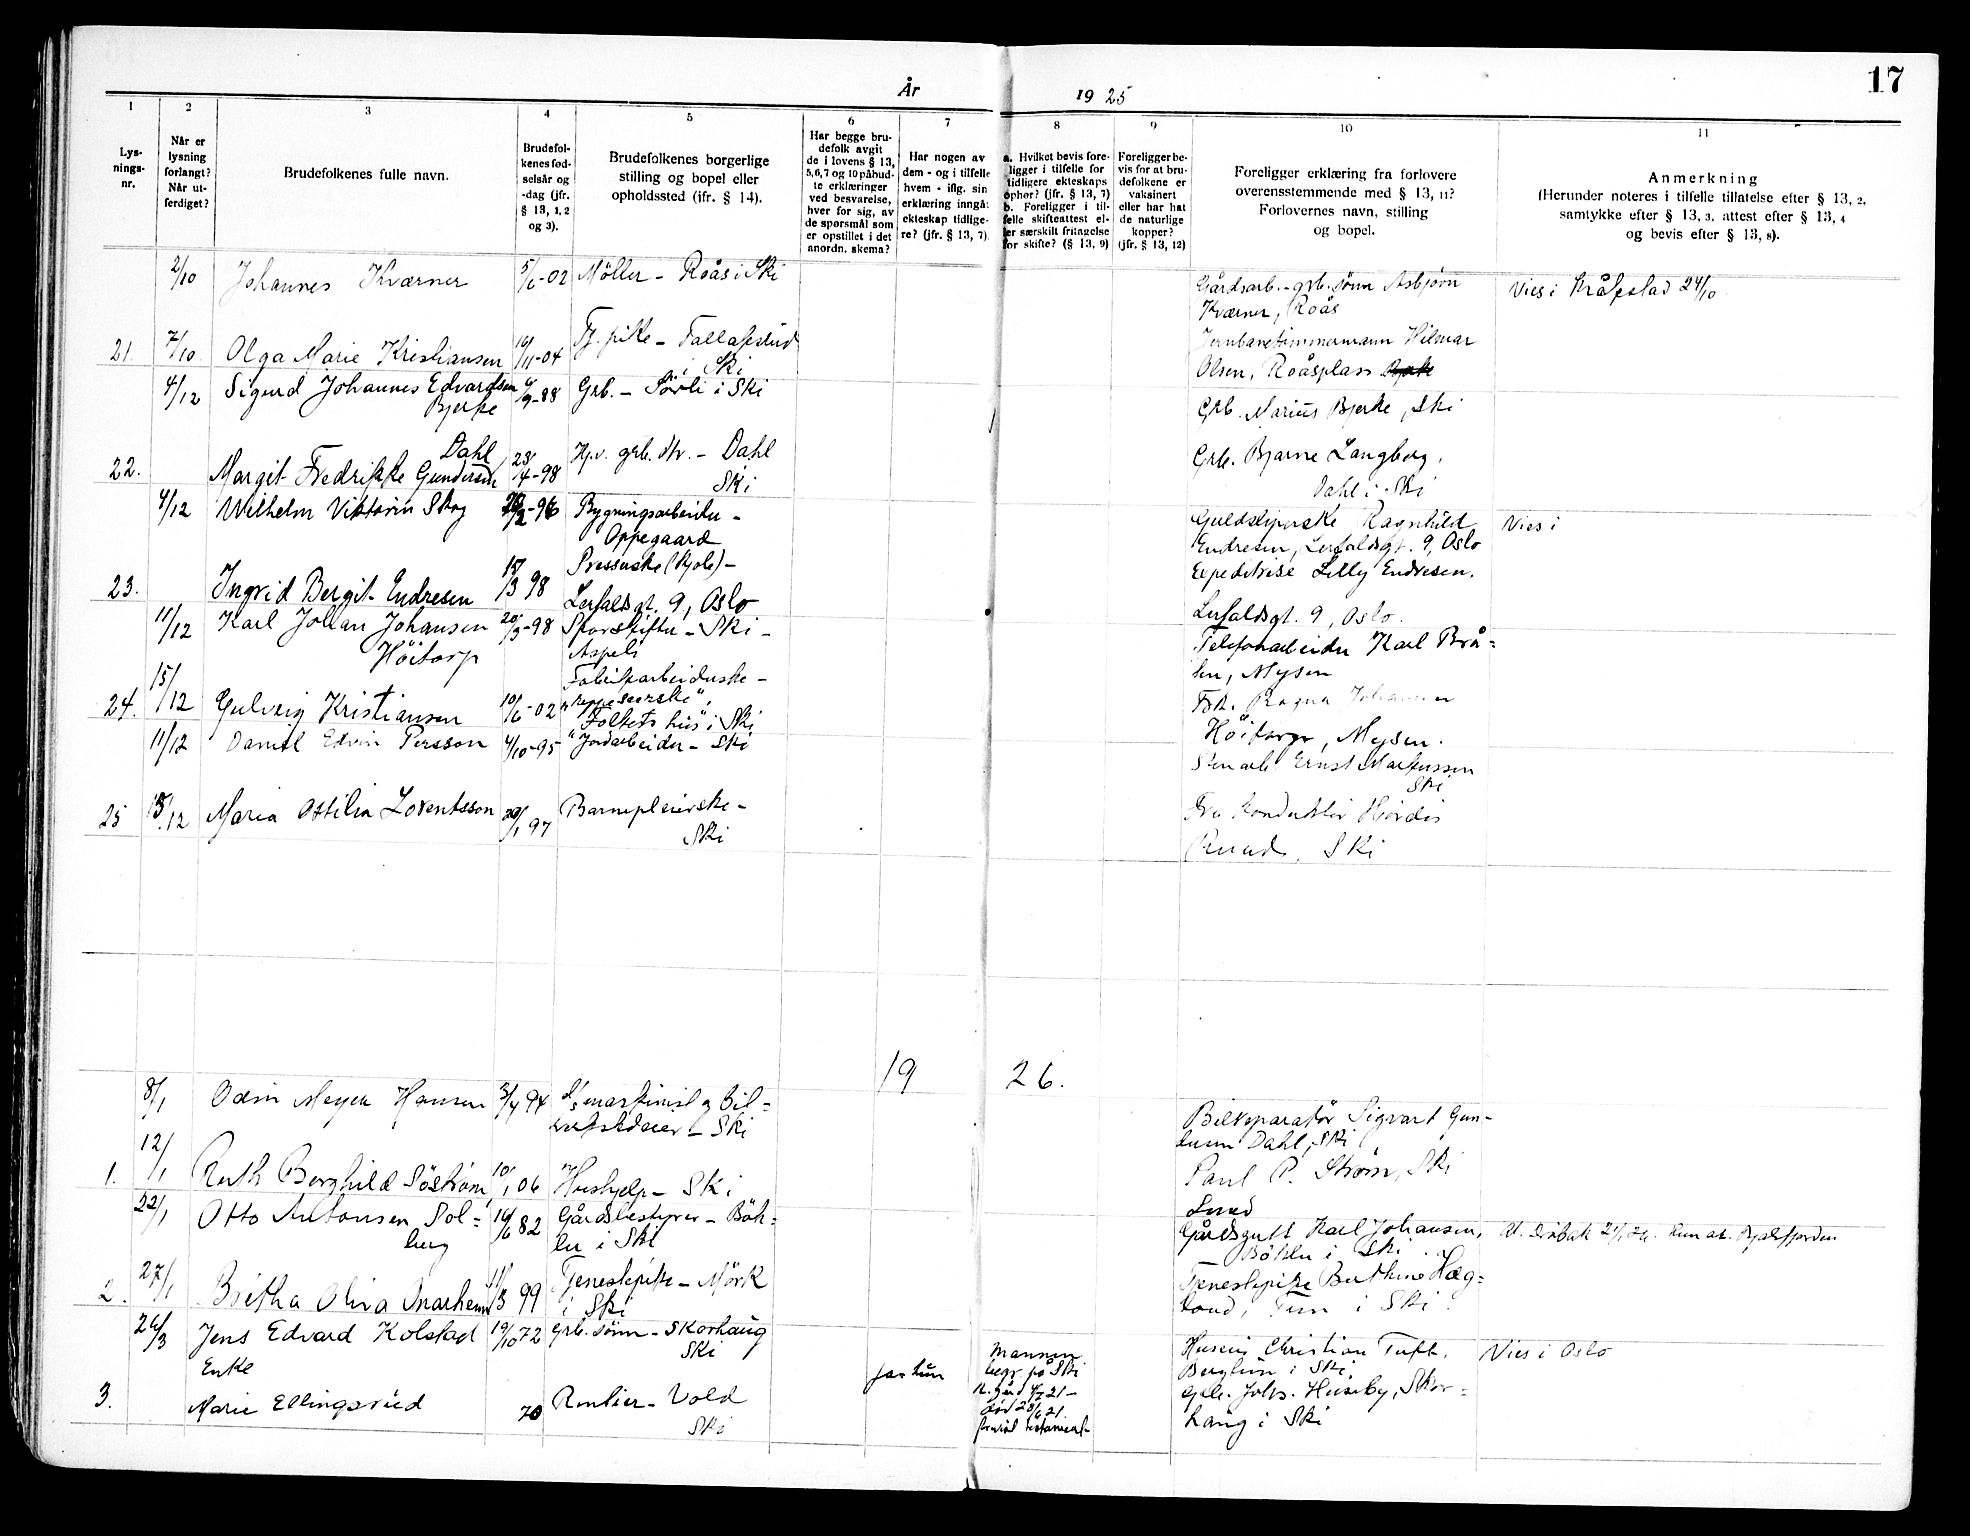 17
År 1925
1
2
3
4
5
6
7
8
9
10
11
Lys-
nings-
nr.
Når er
lysning
forlangt?
Når ut-
ferdiget?
Brudefolkenes fulle navn.
Brudefol-
kenes fød-
selsår og
-dag (jfr.
§ 13, 1, 2
og 3).
Brudefolkenes borgerlige
stilling og bopel eller
opholdssted (jfr. § 14).
Har begge bru-
defolk avgit
de i lovens § 13,
5, 6, 7 og 10 påbud-
te erklæringer
ved besvarelse,
hver for sig, av
de spørsmål som
er opstillet i det
anordn. skema?
Har nogen av
dem - og i tilfelle
hvem - iflg. sin
erklæring inngåt
ekteskap tidlige-
re? (jfr. § 13, 7).
a. Hvilket bevis fore-
ligger i tilfelle for
tidligere ekteskaps
ophør? (jfr. § 13, 7)
b. Foreligger i til-
felle skifteattest el-
ler særskilt fritagelse
for skifte? (§ 13, 9)
Foreligger be-
vis for at bru-
defolkene er
vaksinert
eller har hat
de naturlige
kopper?
(jfr. § 13, 12)
Foreligger erklæring fra forlovere
overensstemmende med § 13, 11?
Forlovernes navn, stilling
og bopel.
Anmerkning
(Herunder noteres i tilfelle tillatelse efter § 13, 2,
samtykke efter § 13, 3, attest efter § 13, 4
og bevis efter § 13, 8).
2/10 Johannes Kværner 5/6-02 Møller - Roås i Ski
Gårdsarb.-grb. sønn Asbjørn
Kværner, Roås
Vies i Kråkstad 24/10
21. 7/10 Olga Marie Kristiansen 16/11-04 Tj. pike - Fallakstad
i Ski
Jernbanetømmermann Hilmar
Olsen, Roåsplass
4/12 Sigurd Johannes Edvardsen
Bjerke
9-88 Grb. - Sørli i Ski
Grb. Marius Bjerke, Ski
22. Margit Fredrikke Gundersen
Dahl
23/4-98 Hj.v. grb. dtr. - Dahl
Ski
Grb. Bjarne Langberg,
Dahl i Ski
4/12 Wilhelm Viktorin Skog
Bygningsarbeider -
Oppegaard
Guldsliperske Ragnhild
Endresen, Lerfaldsgt. 9, Oslo
Vies i
23. Ingrid Bergit Endresen 3 98
Presserske (kjole) -
Lerfaldsgt. 9, Oslo
Expeditrise Lilly Endresen.
Lerfaldsgt. 9, Oslo.
11/12 Karl Johan Johansen
Höitorp
20/3-98 Sporskifter - Ski -
Telefonarbeider Karl Brå-
ten, Mysen
24. 15/12 Gulveig Kristiansen 10/6-02
Fabrikarbeiderske -
"Folkets hus" i Ski
Frk. Ragna Johansen
Höitorp, Mysen.
11/12 Daniel Edvin Persson 4/10-95 Jordarbeider - Ski
Stenarb. Ernst Markussen
Ski
25 15/12 Maria Ottilia Lorentsson 20/1 97 Barnepleierske -
Ski
Fru konduktör Hördis
Ruud, Ski
1926.
8/1 Odin Meyer Hansen 3/4 94
- Ski
Bilreparatør Sigvart Gun-
dersen Dahl, Ski
1. 12/1 Ruth Borghild Söström 10/1 06 Hushjelp - Ski
Paul P. Strøm, Ski
22/1 Otto Antonsen Sol-
berg
14/6 82 Gårdsbestyrer - Böh-
ler i Ski
Gårdsgutt Karl Johansen,
Böhler i Ski
2. 27/1 Britha Oliva Onarheim 3 99 Tjenestepike - Mörk
i Ski
Tjenestepike Berthine Hæg-
land, Tun i Ski.
26/3 Jens Edvard Kolstad 19/10 72 Grb. sönn - Skorhaug
Ski
Husein Christian Tuft.
Berglun i Ski
Vies i Oslo
Enke
3. Marie Ellingsrud 70 Rentier - Vold
Ski
Ja hun
Mannen
begr. på Ski
død 28/6 21
Grb. Johs. Huseby, Skor-
haug i Ski